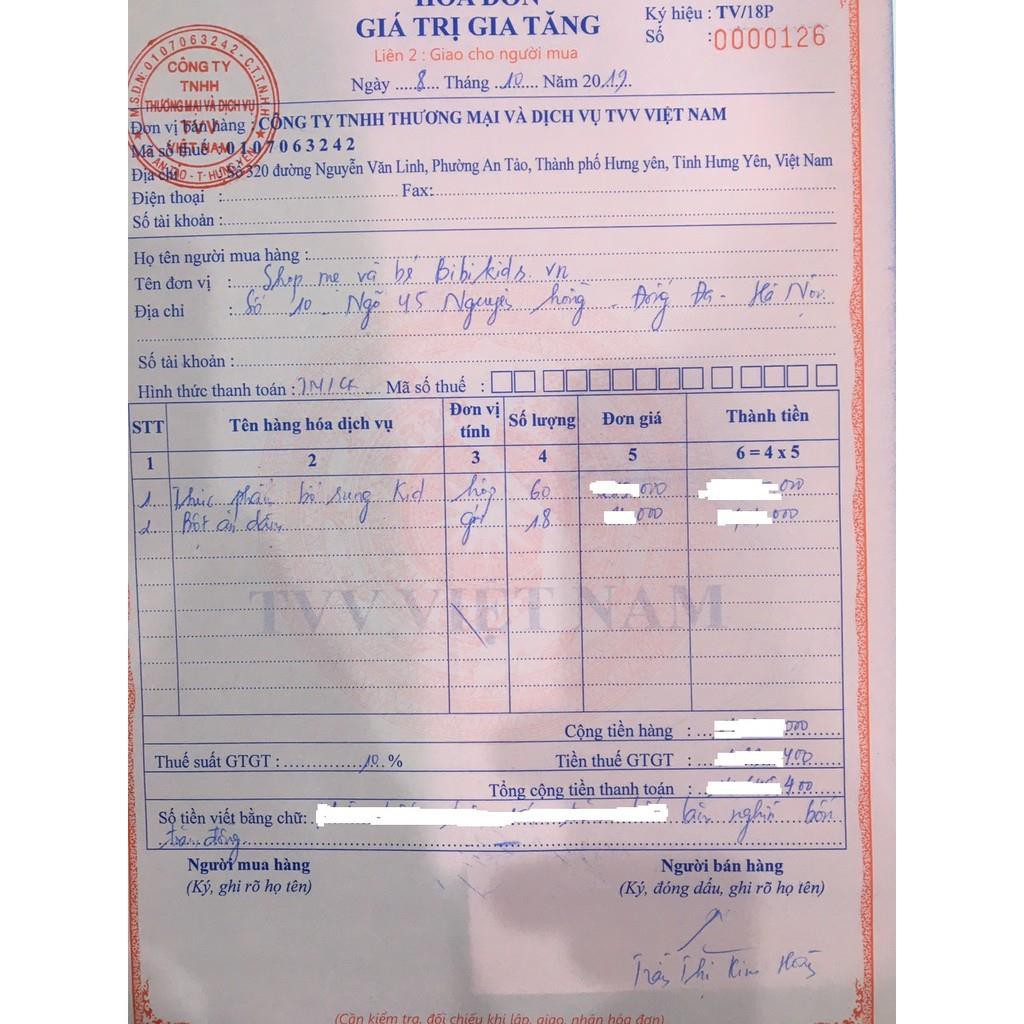 HÓA ĐƠN
GIÁ TRỊ GIA TĂNG
Liên 2 : Giao cho người mua
Ngày .....8.... Tháng ..10.... Năm 2019..
Ký hiệu : TV/18P
Số :0000126
M.S.D.N:0107063242-C.T.T.N.H.H
CÔNG TY
TNHH
THƯƠNG MẠI VÀ DỊCH VỤ
TVV
VIỆT NAM
Đơn vị bán hàng : CÔNG TY TNHH THƯƠNG MẠI VÀ DỊCH VỤ TVV VIỆT NAM
Mã số thuế : 0107063242
Địa chỉ : Số 320 đường Nguyễn Văn Linh, Phường An Tảo, Thành phố Hưng yên, Tỉnh Hưng Yên, Việt Nam
Điện thoại : Fax:
Số tài khoản :
Họ tên người mua hàng :
Tên đơn vị : Shop mẹ và bé Bibikids.vn
Địa chỉ : Số 10 Ngõ 45 Nguyên hồng - Đống Đa - Hà Nội.
Số tài khoản :
Hình thức thanh toán : TM/CK Mã số thuế :
STT Tên hàng hóa dịch vụ Đơn vị tính Số lượng Đơn giá Thành tiền
1 2 3 4 5 6 = 4 x 5
1. Thực phẩm bổ sung Kid hộp 60 000 000
2. Bột ăn dặm gói 18 000 000
TVV VIỆT NAM
Cộng tiền hàng : 000
Thuế suất GTGT : 10 % Tiền thuế GTGT : 400
Tổng cộng tiền thanh toán : 400
Số tiền viết bằng chữ: nghìn bốn
trăm đồng
Người mua hàng Người bán hàng
(Ký, ghi rõ họ tên) (Ký, đóng dấu, ghi rõ họ tên)
Trần Thị Kim
(Cần kiểm tra, đối chiếu khi lập, giao, nhận hóa đơn)